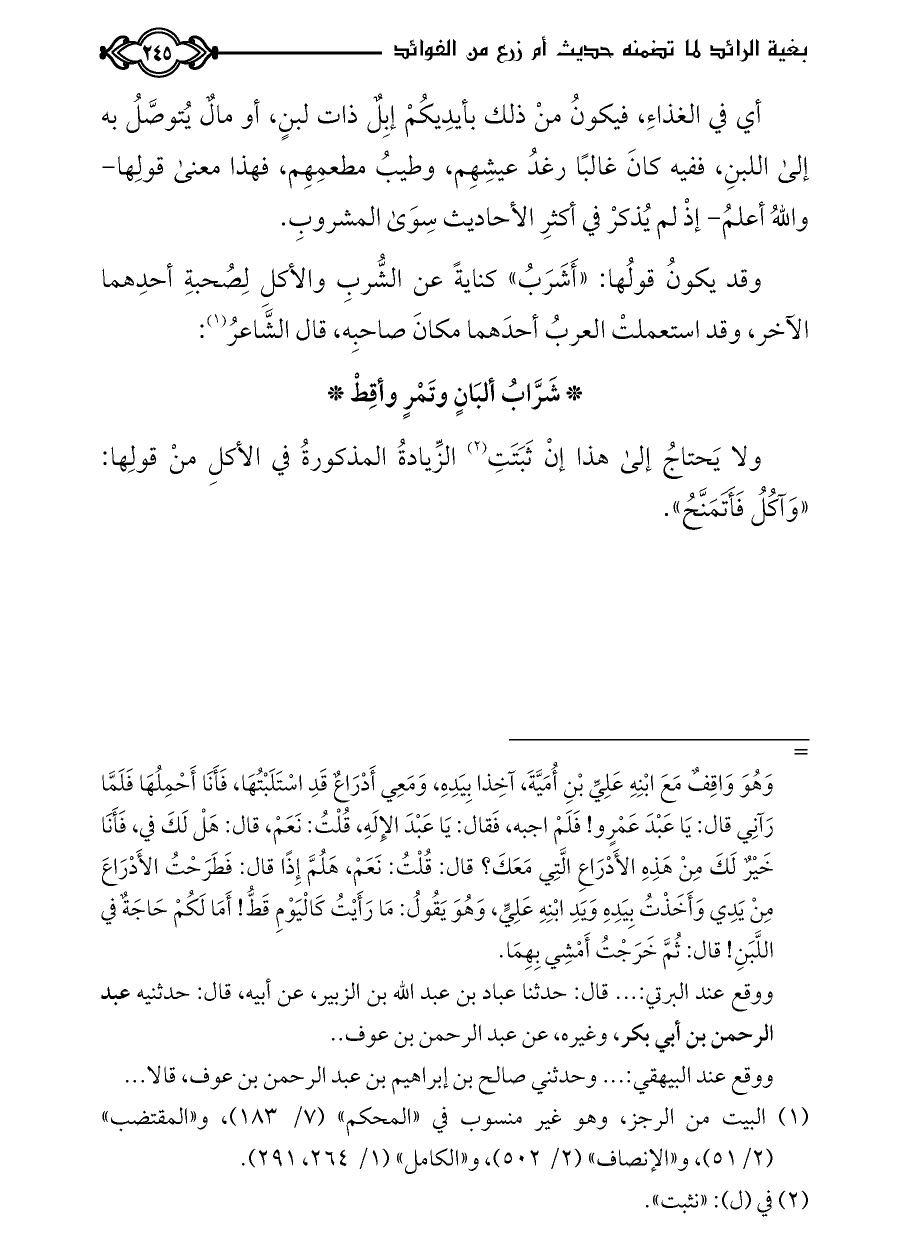 بغية الرائد لما تضمنه حديث أم زرع من الفوائد ٢٤٥
أي في الغذاءِ، فيكونُ منْ ذلك بأيدِيكُمْ إبِلٌ ذات لبنٍ، أو مالٌ يُتوصَّلُ به
إلىٰ اللبنِ، ففيه كانَ غالبًا رغدُ عيشِهِم، وطيبُ مطعمِهِم، فهذا معنىٰ قولِها–
واللهُ أعلمُ– إذْ لم يُذكرْ في أكثرِ الأحاديث سِوَىٰ المشروبِ.
وقد يكونُ قولُها: «أَشَرَبُ» كنايةً عن الشُّربِ والأكلِ لِصُحبةِ أحدِهما
الآخر، وقد استعملتْ العربُ أحدَهما مكانَ صاحبِه، قال الشَّاعرُ(١):
* شَرَّابُ ألبَانٍ وتَمْرٍ وأقِطْ *
ولا يَحتاجُ إلىٰ هذا إنْ ثَبَتَتِ(٢) الزِّيادةُ المذكورةُ في الأكلِ منْ قولِها:
«وَآكُلُ فَأَتَمَنَّحُ».
=
وَهُوَ وَاقِفٌ مَعَ ابْنِهِ عَلِيِّ بْنِ أُمَيَّةَ، آخِذا بِيَدِهِ، وَمَعِي أَدْرَاعٌ قَدِ اسْتَلَبْتُهَا، فَأَنَا أَحْمِلُهَا فَلَمَّا
رَآنِي قال: يَا عَبْدَ عَمْرٍو! فَلَمْ اجبه، فَقال: يَا عَبْدَ الإِلَهِ، قُلْتُ: نَعَمْ، قال: هَلْ لَكَ في، فَأَنَا
خَيْرٌ لَكَ مِنْ هَذِهِ الأَدْرَاعِ الَّتِي مَعَكَ؟ قال: قُلْتُ: نَعَمْ، هَلُمَّ إِذًا قال: فَطَرَحْتُ الأَدْرَاعَ
مِنْ يَدِي وَأَخَذْتُ بِيَدِهِ وَيَدِ ابْنِهِ عَلِيٍّ، وَهُوَ يَقُولُ: مَا رَأَيْتُ كَالْيَوْمِ قَطُّ! أَمَا لَكُمْ حَاجَةٌ في
اللَّبَنِ! قال: ثُمَّ خَرَجْتُ أَمْشِي بِهِمَا.
ووقع عند البرتي:... قال: حدثنا عباد بن عبد الله بن الزبير، عن أبيه، قال: حدثنيه عبد
الرحمن بن أبي بكر، وغيره، عن عبد الرحمن بن عوف..
ووقع عند البيهقي:... وحدثني صالح بن إبراهيم بن عبد الرحمن بن عوف، قالا...
(١) البيت من الرجز، وهو غير منسوب في «المحكم» (٧/ ١٨٣)، و«المقتضب»
(٢/ ٥١)، و«الإنصاف» (٢/ ٥٠٢)، و«الكامل» (١/ ٢٦٤، ٢٩١).
(٢) في (ل): «نثبت».